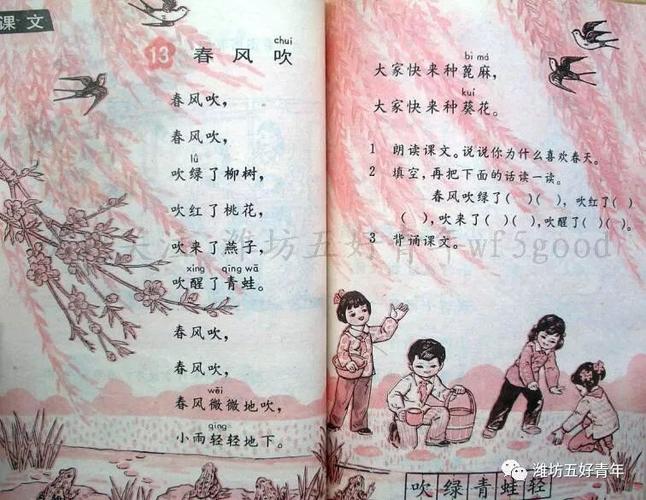 课文
13 春风吹
chuī
春风吹，
春风吹，
lǜ
吹绿了柳树，
吹红了桃花，
吹来了燕子，
xǐng qīng wā
吹醒了青蛙。
春风吹，
春风吹，
wēi
春风微微地吹，
qīng
小雨轻轻地下。
bì má
大家快来种蓖麻，
kuí
大家快来种葵花。
1 朗读课文。说说你为什么喜欢春天。
2 填空，再把下面的话读一读。
春风吹绿了( )( )，吹红了( )
( )，吹来了( )( )，吹醒了( )( )。
3 背诵课文。
吹绿青蛙轻
潍坊五好青年wf5good
潍坊五好青年